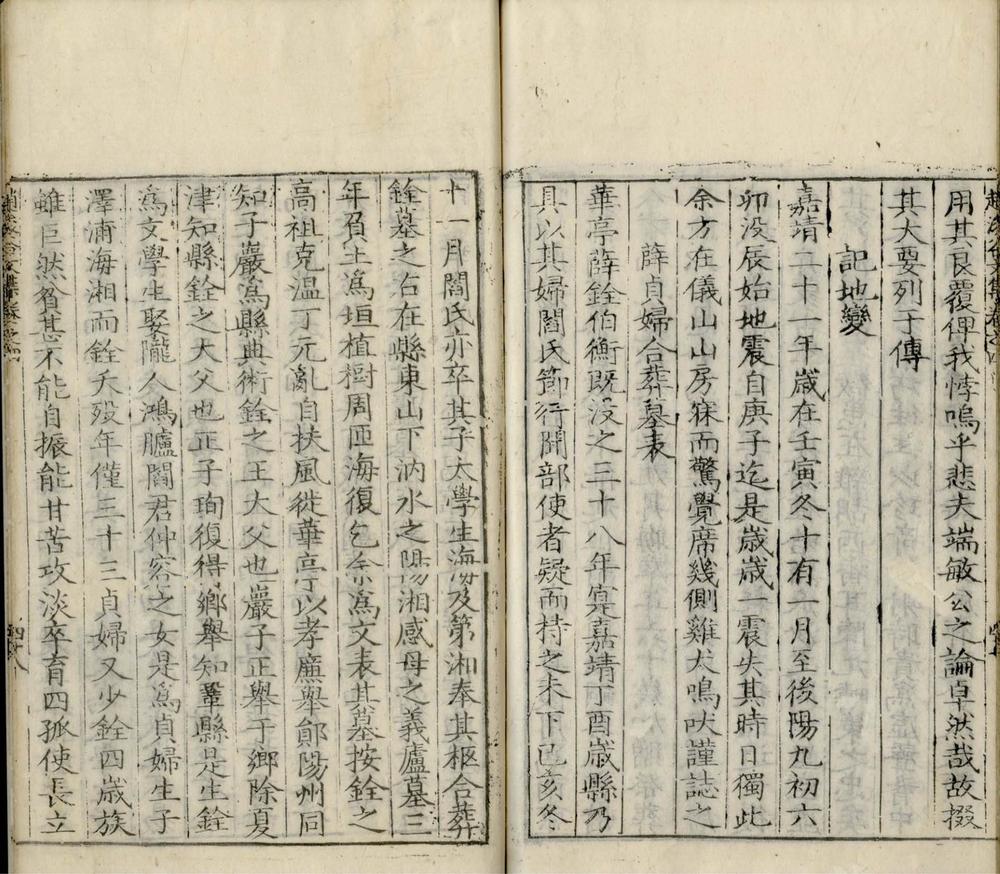 用其良覆俾我悖嗚乎悲夫端敏公之論卓然哉故掇
其大要列于傳
記地變
嘉靖二十一年歲在壬寅冬十有一月至後陽九初六
卯没辰始地震自庚子迄是歲歲一震失其時日獨此
余方在儀山山房寐而驚覺席幾側雞犬鳴吠謹誌之
薛貞婦合葬墓表
華亭薛銓伯衡既没之三十八年寔嘉靖丁酉歲縣乃
具以其婦閻氏節行聞部使者疑而持之未下已亥冬
十一月閻氏亦卒其子太學生海及第湘奉其柩合葬
銓墓之右在縣東山下汭水之陽湘感母之義廬墓三
年負土爲垣植樹周匝海復乞余爲文表其墓按銓之
高祖克温丁元亂自扶風徙華亭以孝廉舉鄖陽州同
知子巖爲縣典術銓之王大父也巖子正舉于鄉除夏
津知縣銓之大父也正子珣復得鄉舉知鞏縣是生銓
爲文學生娶隴人鴻臚閻君仲容之女是爲貞婦生子
澤浦海湘而銓夭歿年僅三十三貞婦又少銓四歲族
雖巨然貧甚不能自振能甘苦攻淡卒育四孤使長立